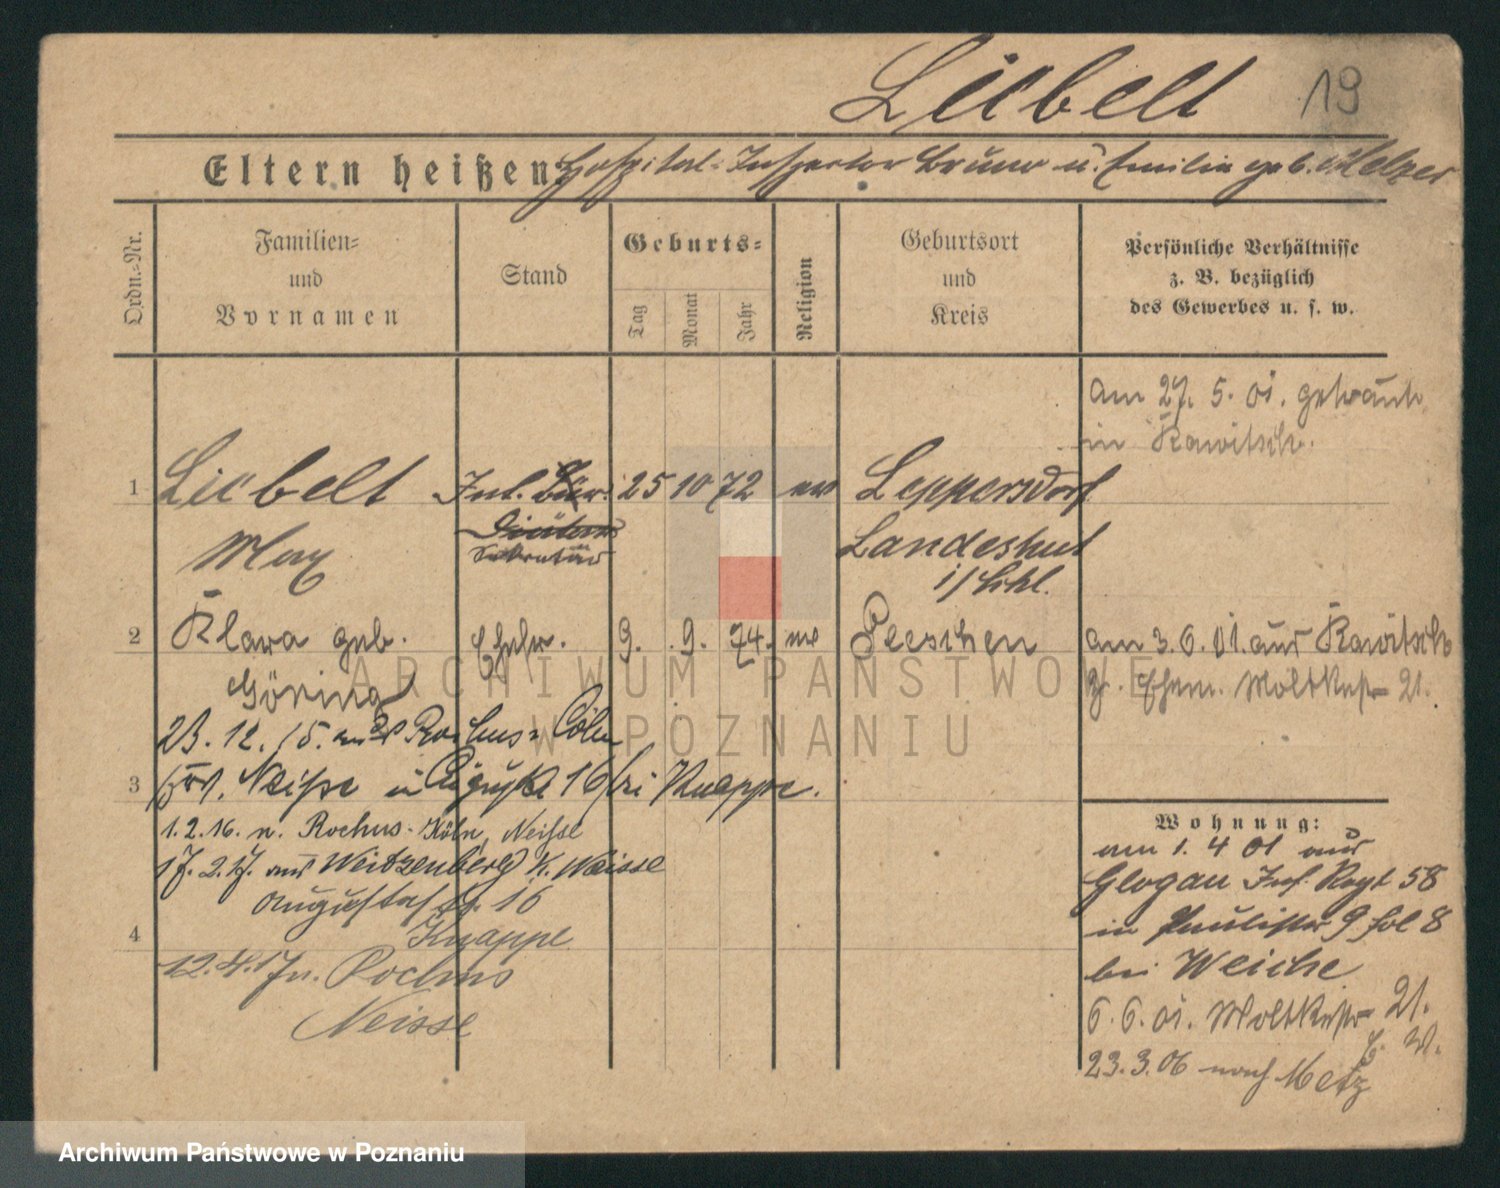 Liebelt 19
Eltern heißen: Hospital-Inspector Bruno u. Emilie geb. Melzer
Ordn.-Nr.
Familien-
und
Vornamen
Stand
Geburts-
Tag
Monat
Jahr
Religion
Geburtsort
und
Kreis
Persönliche Verhältnisse
z. B. bezüglich
des Gewerbes u. s. w.
am 27. 5. 01. getraut
in Rawitsch.
1 Liebelt Int. 25 10 72 ev Leppersdorf
Max Sekretär Landeshut
i/Schl.
2 Klara geb. Ehefr. 9. 9. 74. ev Peeschen
Göring
am 3.6.01. aus Rawitsch
z. Ehem. Moltkestr 21.
23. 12. 15. aus Rochus-Cöln
3 Neisse Auguststr 16 bei Knappe.
1.2.16. n. Rochus-Köln, Neisse
17. 2. 17. aus Weitzenberg K. Neisse
Augustastr. 16
4 Knappe
12.4.17 n. Rochus
Neisse
Wohnung:
am 1. 4 01 aus
Glogau Inf. Regt 58
in 9 bei
bei Weiche
6.6.01. Moltkestr 21.
23.3.06 nach Metz
ARCHIWUM PAŃSTWOWE
W POZNANIU
Archiwum Państwowe w Poznaniu